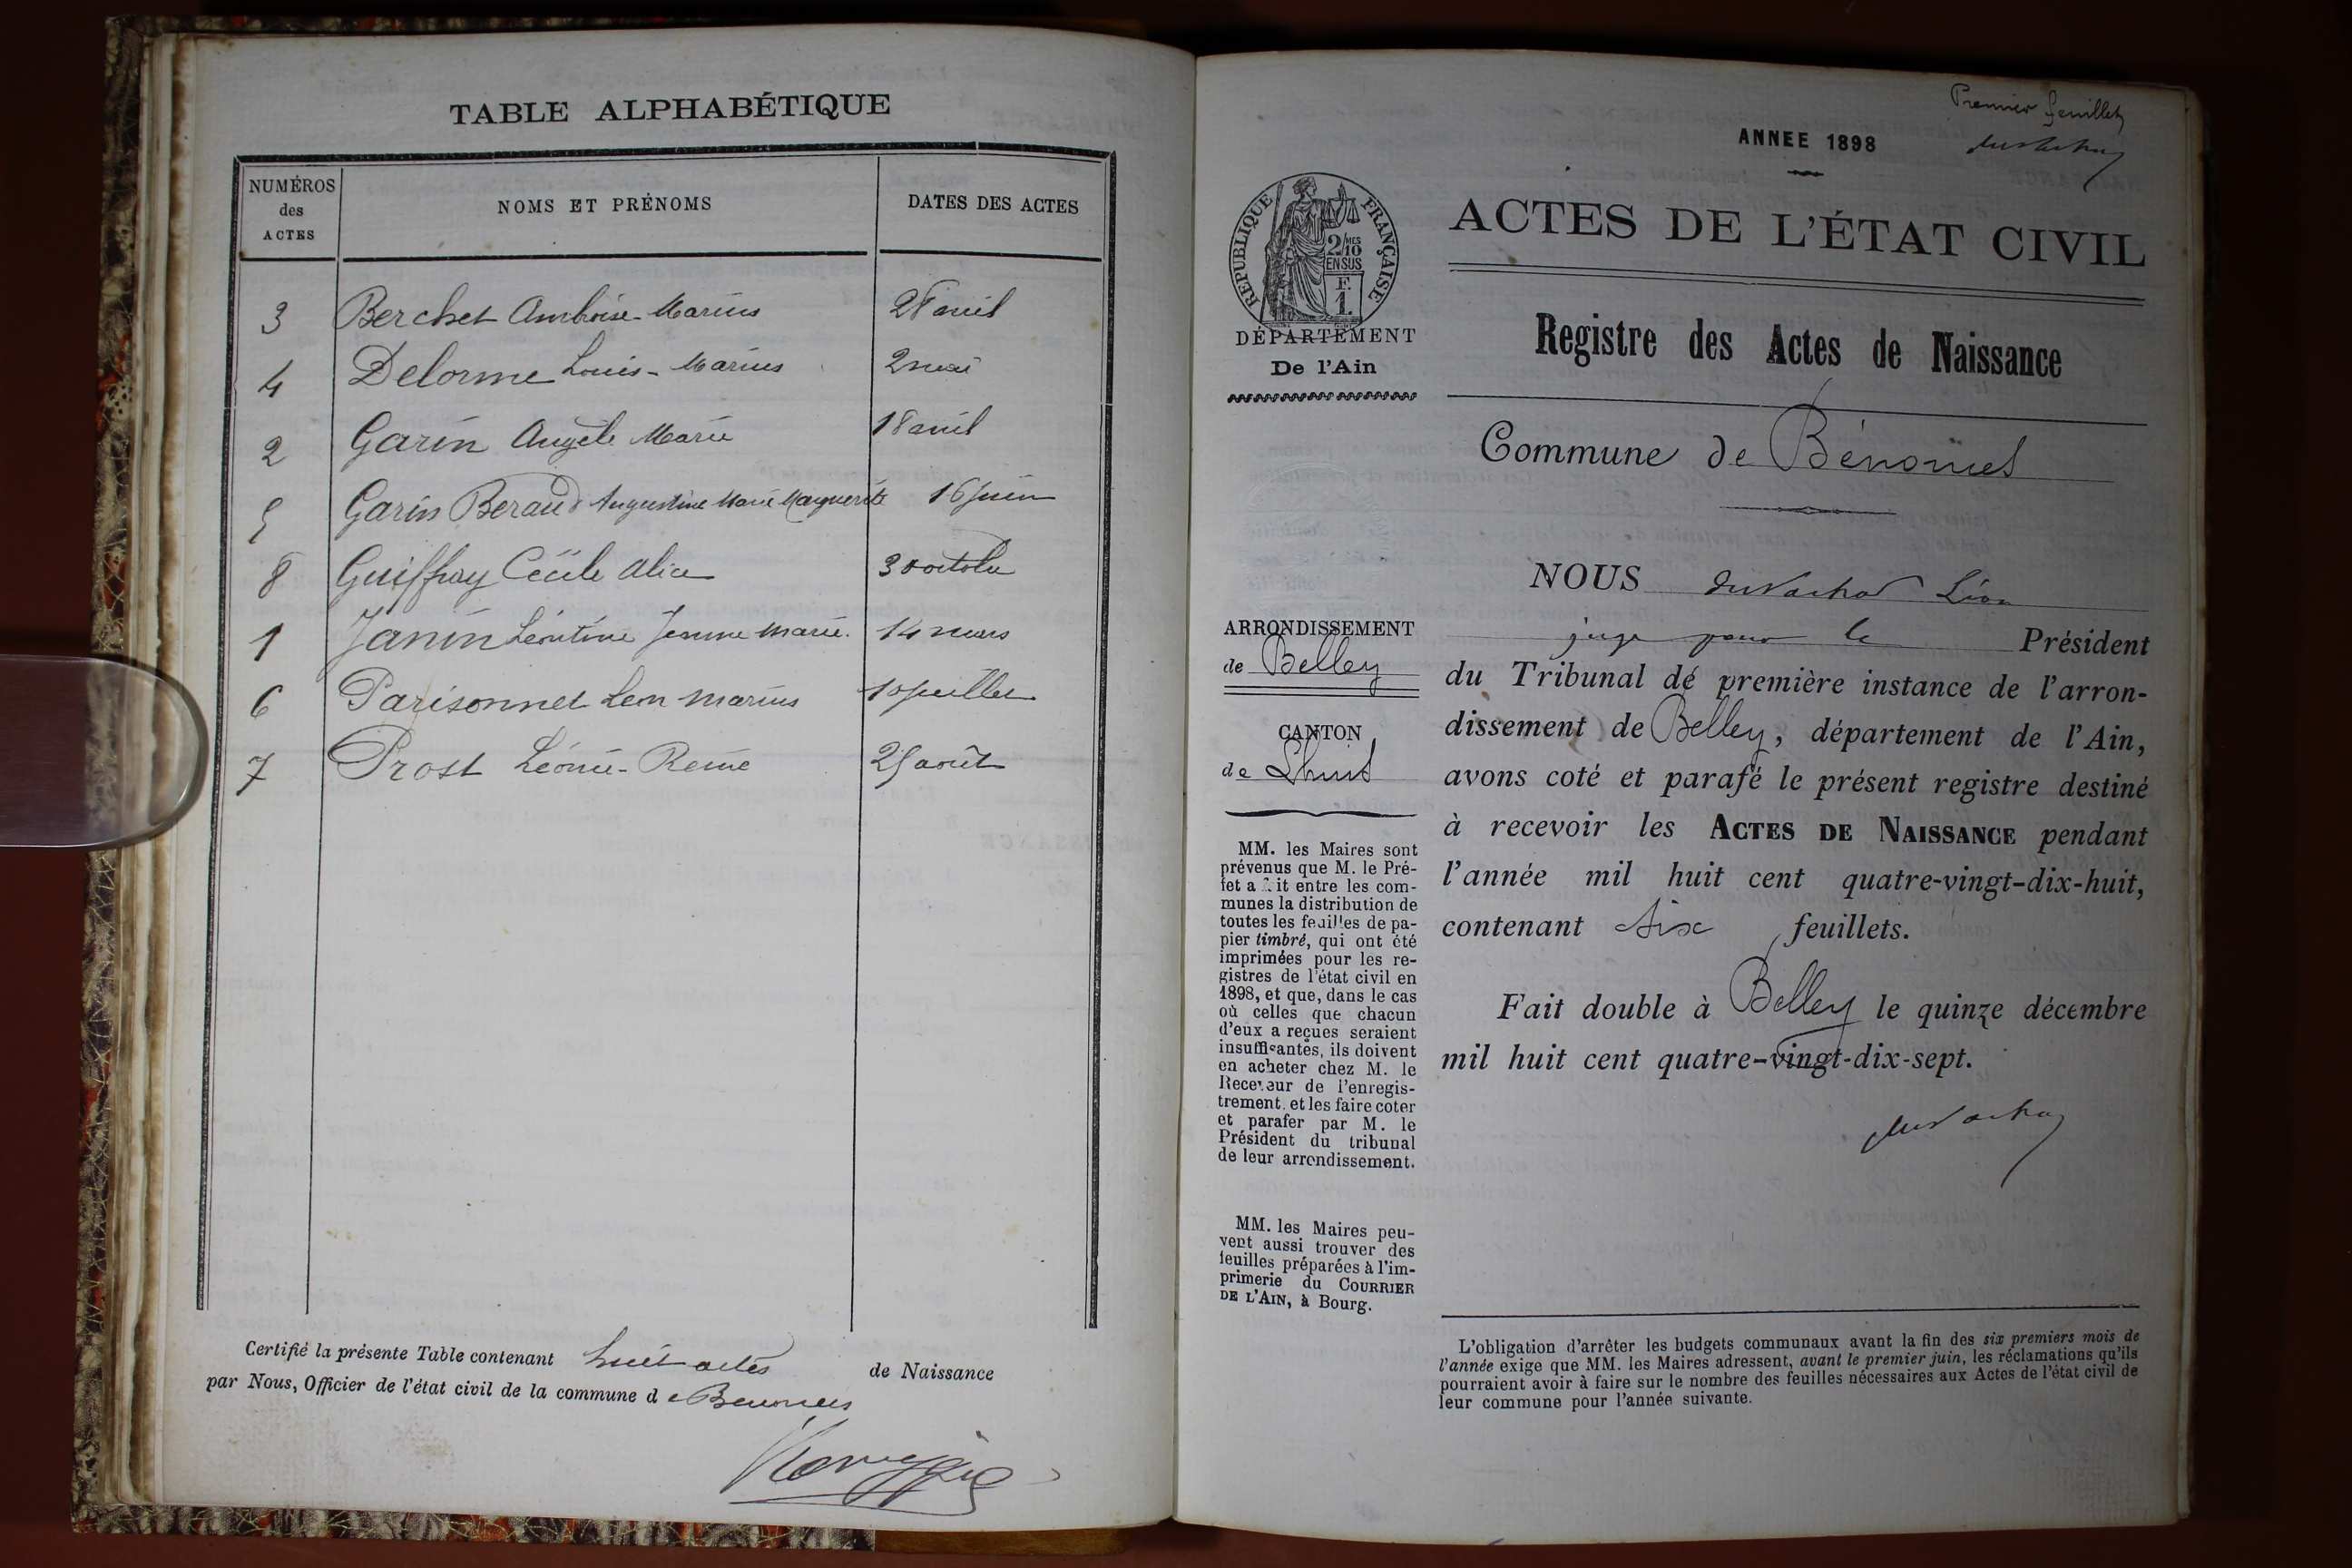 TABLE ALPHABÉTIQUE
NUMÉROS des ACTES
NOMS ET PRÉNOMS
DATES DES ACTES
3 Berchet Ambroise-Marius 28 avril
4 Delorme Louis-Marius 2 mai
2 Garin Angèle Marie 18 avril
5 Garin Beraud Augustine Marie Marguerite 16 juin
8 Guiffray Cécile Alice 30 octobre
1 Janin Léontine Jeanne Marie. 14 mars
6 Parisonnet Leon Marius 10 juillet
7 Prost Léonie-Reine 25 août
Certifié la présente Table contenant huit actes de Naissance
par Nous, Officier de l'état civil de la commune de Benonces
Premier feuillet
ANNEE 1898
REPUBLIQUE FRANÇAISE
2/10 MES
EN SUS
F.
1.
DÉPARTEMENT
De l'Ain
ACTES DE L'ÉTAT CIVIL
Registre des Actes de Naissance
Commune de Bénonces
ARRONDISSEMENT
de Belley
CANTON
de Lhuis
MM. les Maires sont
prévenus que M. le Pré-
fet a fait entre les com-
munes la distribution de
toutes les feuilles de pa-
pier timbré, qui ont été
imprimées pour les re-
gistres de l'état civil en
1898, et que, dans le cas
où celles que chacun
d'eux a reçues seraient
insuffisantes, ils doivent
en acheter chez M. le
Receveur de l'enregis-
trement, et les faire coter
et parafer par M. le
Président du tribunal
de leur arrondissement.
MM. les Maires peu-
vent aussi trouver des
feuilles préparées à l'im-
primerie du COURRIER
DE L'AIN, à Bourg.
NOUS Léon
juge pour le Président
du Tribunal de première instance de l'arron-
dissement de Belley, département de l'Ain,
avons coté et parafé le présent registre destiné
à recevoir les ACTES DE NAISSANCE pendant
l'année mil huit cent quatre-vingt-dix-huit,
contenant six feuillets.
Fait double à Belley le quinze décembre
mil huit cent quatre-vingt-dix-sept.
L'obligation d'arrêter les budgets communaux avant la fin des six premiers mois de
l'année exige que MM. les Maires adressent, avant le premier juin, les réclamations qu'ils
pourraient avoir à faire sur le nombre des feuilles nécessaires aux Actes de l'état civil de
leur commune pour l'année suivante.